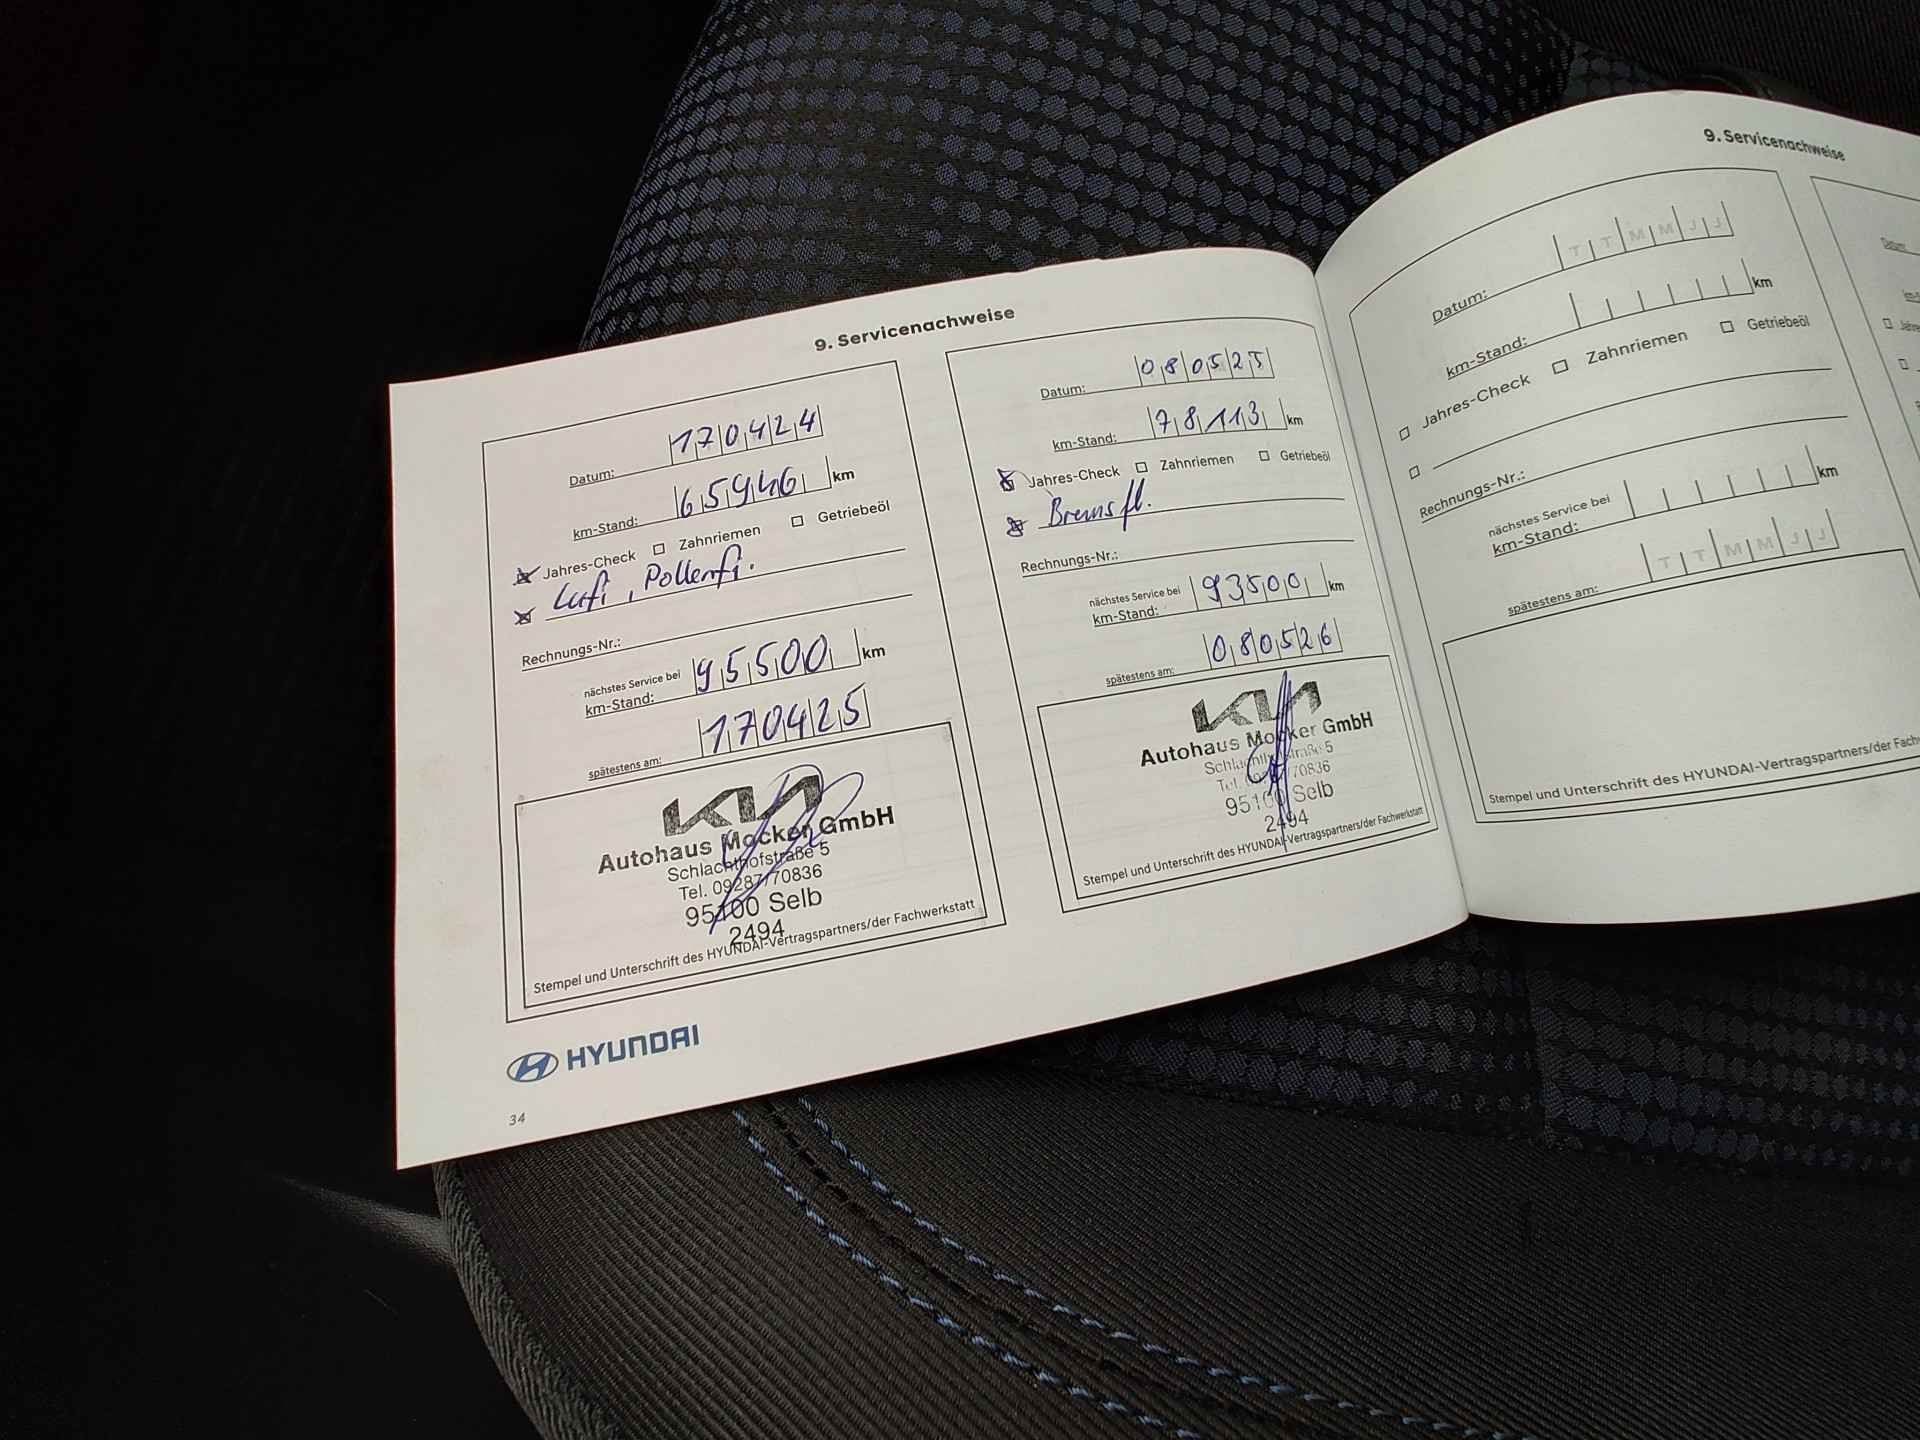 9. Servicenachweise
Datum: 170424
km-Stand: 65946 km
Jahres-Check Zahnriemen Getriebeöl
Lufi, Pollenfi.
Rechnungs-Nr.:
nächstes Service bei
km-Stand: 95500 km
spätestens am: 170425
KIA
Autohaus Mocker GmbH
Schlachthofstraße 5
Tel. 09287/70836
95100 Selb
2494
Stempel und Unterschrift des HYUNDAI-Vertragspartners/der Fachwerkstatt
HYUNDAI
34
Datum: 080525
km-Stand: 78113 km
Jahres-Check Zahnriemen Getriebeöl
Bremsfl.
Rechnungs-Nr.:
nächstes Service bei
km-Stand: 93500 km
spätestens am: 080526
KIA
Autohaus Mocker GmbH
Schlachthofstraße 5
Tel. 09287/70836
95100 Selb
2494
Stempel und Unterschrift des HYUNDAI-Vertragspartners/der Fachwerkstatt
9. Servicenachweise
Datum: T T M M J J
km-Stand: km
Jahres-Check Zahnriemen Getriebeöl
Rechnungs-Nr.:
nächstes Service bei
km-Stand: km
spätestens am: T T M M J J
Stempel und Unterschrift des HYUNDAI-Vertragspartners/der Fachw
Datum: